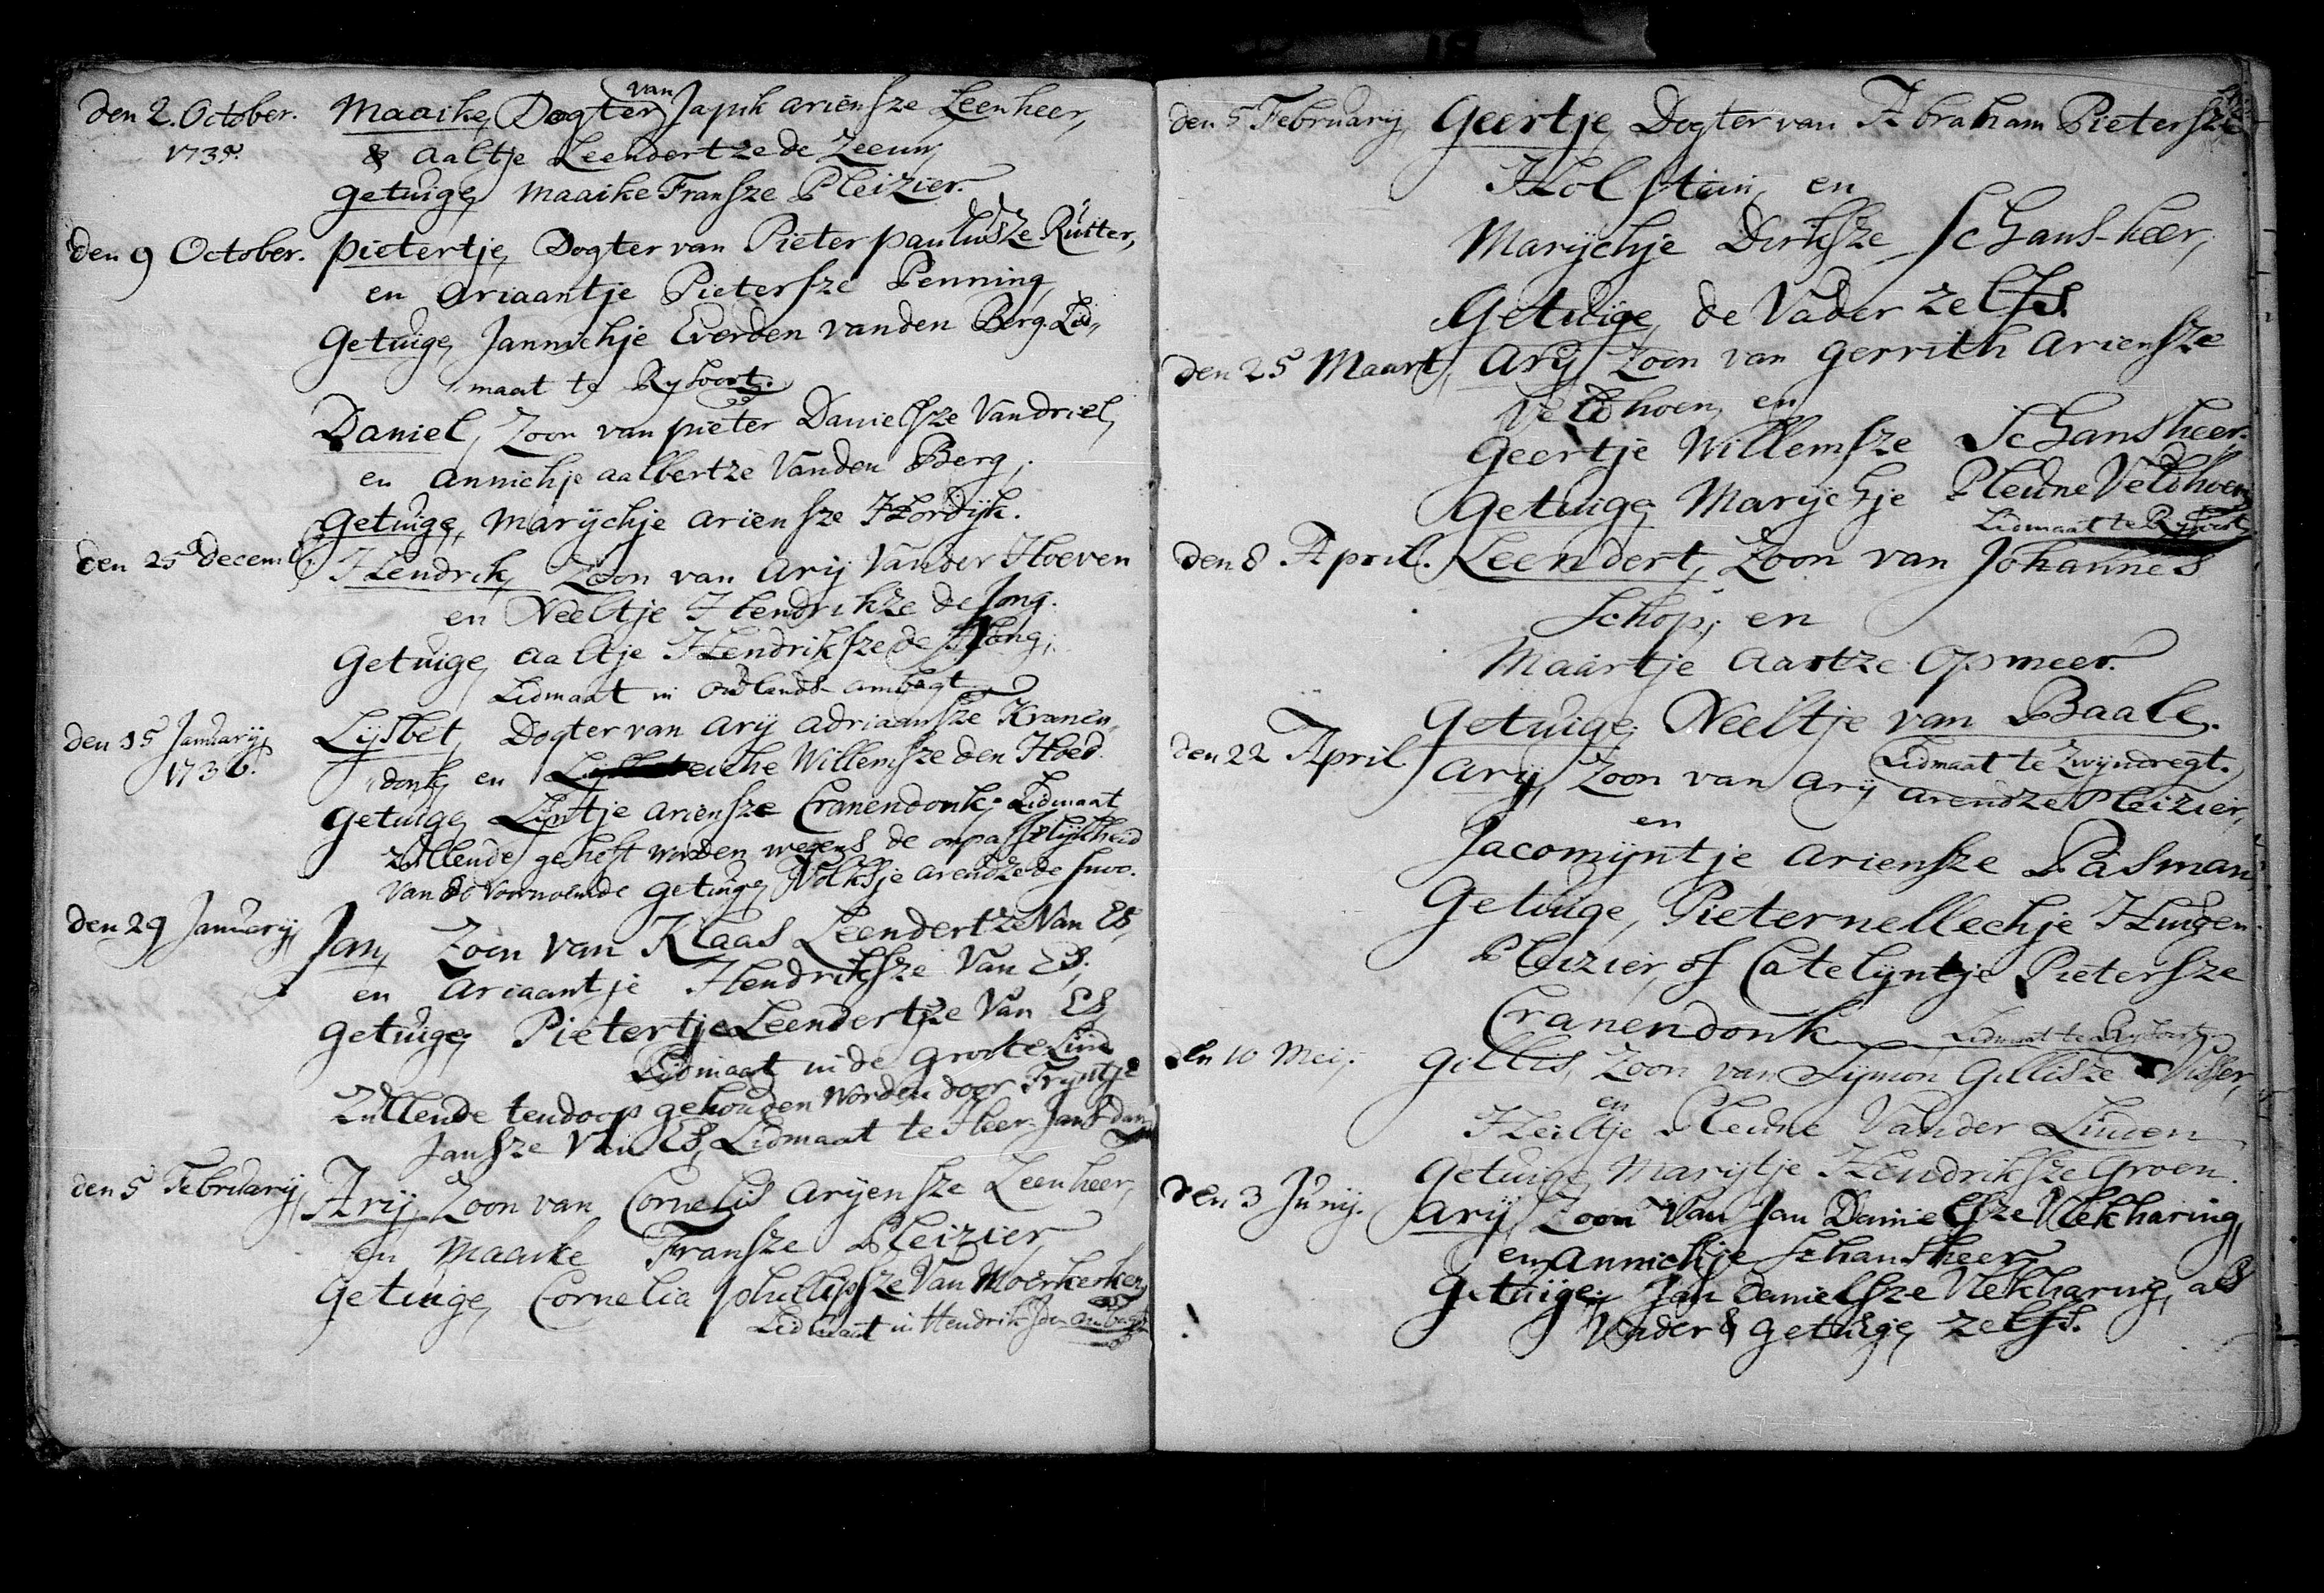 den 2. October. Maaike, Dogter van Japik Ariensze Leenheer,
1735. & Aaltje Leendertze de Zeeuw,
getuige, Maaike Fransze Pleizier.
den 9 October. Pietertje, Dogter van Pieter paulusze Ruiter,
en Ariaantje Pietersze Penning,
Getuige, Jannichje Everden vanden Berg. Lid-
maat te Rysoort.
Daniel, Zoon van pieter Danielsze Van driel,
en Annichje aalbertze Vanden Berg,
Getuige, Marijchje Ariensze Hordijk.
den 25 decemb. Hendrik, Zoon van Arij Vander Hoeven
en Neeltje Hendrikze de Jong.
Getuige, Aaltje Hendriksze de Jong,
Lidmaat in Oudlands-ambagt
den 15 January, Lijsbet, Dogter van Arij Adriaansze Kranen-
1736. donk, en Willemsze den Hoed.
Getuige, Lijntje Ariensze Cranendonk, Lidmaat
zullende geheft worden wegens de onpasselijkheid
Van de Voornoemde getuige, Arendze de
den 29 January, Jan, Zoon van Klaas Leendertze Van Es,
en Ariaantje Hendriksze Van Es.
Getuige, Pietertje Leendertze Van Es,
Lidmaat in de Groote Lind
Zullende tendoop gehouden worden door Tryntje
Jansze Van Es, Lidmaat te Heer-Jans dam
den 5 February, Arij, Zoon van Cornelis Aryensze Leenheer,
en Maaike Fransze Pleizier,
Getuige, Cornelia Phillipsze Van Moerkerken,
Lidmaat in Hendrik Ido Ambagt
den 5 February, Geertje, Dogter van Abraham Pietersze
Holstein, en
Marijchje Dirksze Schans-heer,
Getuige, de Vader zelfs.
den 25 Maart, Arij, Zoon van Gerrith Ariensze
Veldhoen, en
Geertje Willemsze Schansheer.
Getuige, Marijchje Pleune Veldhoen,
Lidmaat te Rysoort
den 8 April. Leendert, Zoon van Johannes
Schop, en
Maartje Aartze Opmeer.
Getuige, Neeltje van Baale.
Lidmaat te Zwyndregt.
den 22 April Arij, Zoon van Arij Arendze Pleizier,
en
Jacomijntje Ariensze Pasman.
Getuige, Pieternellechje Huigen
Pleizier, of Catelijntje Pietersze
Cranendonk Lidmaat te Rysoort
den 10 Mei. Gillis, Zoon van Sijmon Gillisze Visser,
en
Heiltje Pleune Vander Linden
Getuige, Marijtje Hendriksze Groen.
den 3 Junij. Arij, Zoon Van Jan Danielsze Vlekharing,
en Annichje Schansheer
Getuige, Jan Danielsze Vlekharing, als
Vader & getuige, zelfs.